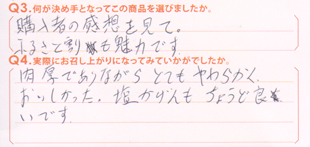 Q3.何が決め手となってこの商品を選びましたか。
購入者の感想を見て。
ふるさと割も魅力です
Q4.実際にお召し上がりになってみていかがでしたか。
肉厚でありながら とてもやわらかく
おいしかった。塩かげんも ちょうど良
いです